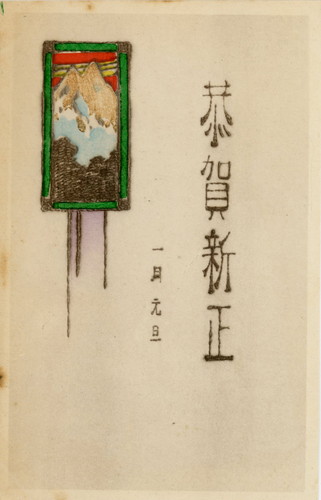 恭賀新正
一月元旦